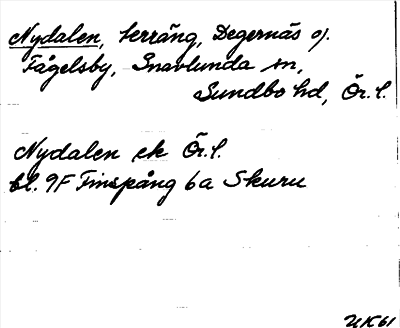 Nydalen, terräng, Degernäs o.
Fågelsby, Snavlunda sn,
Sundbo hd, Ör. l.
Nydalen ek Ör. l.
bl. 9F Finspång 6a Skuru
UK61